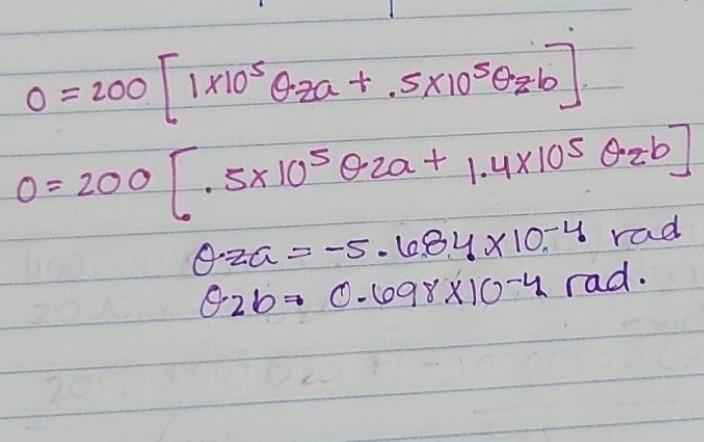 0 = 200 [1×10⁵ θza + .5×10⁵ θzb]
0 = 200 [.5×10⁵ θza + 1.4×10⁵ θzb]
θza = -5.684×10⁻⁴ rad
θzb = 0.698×10⁻⁴ rad.